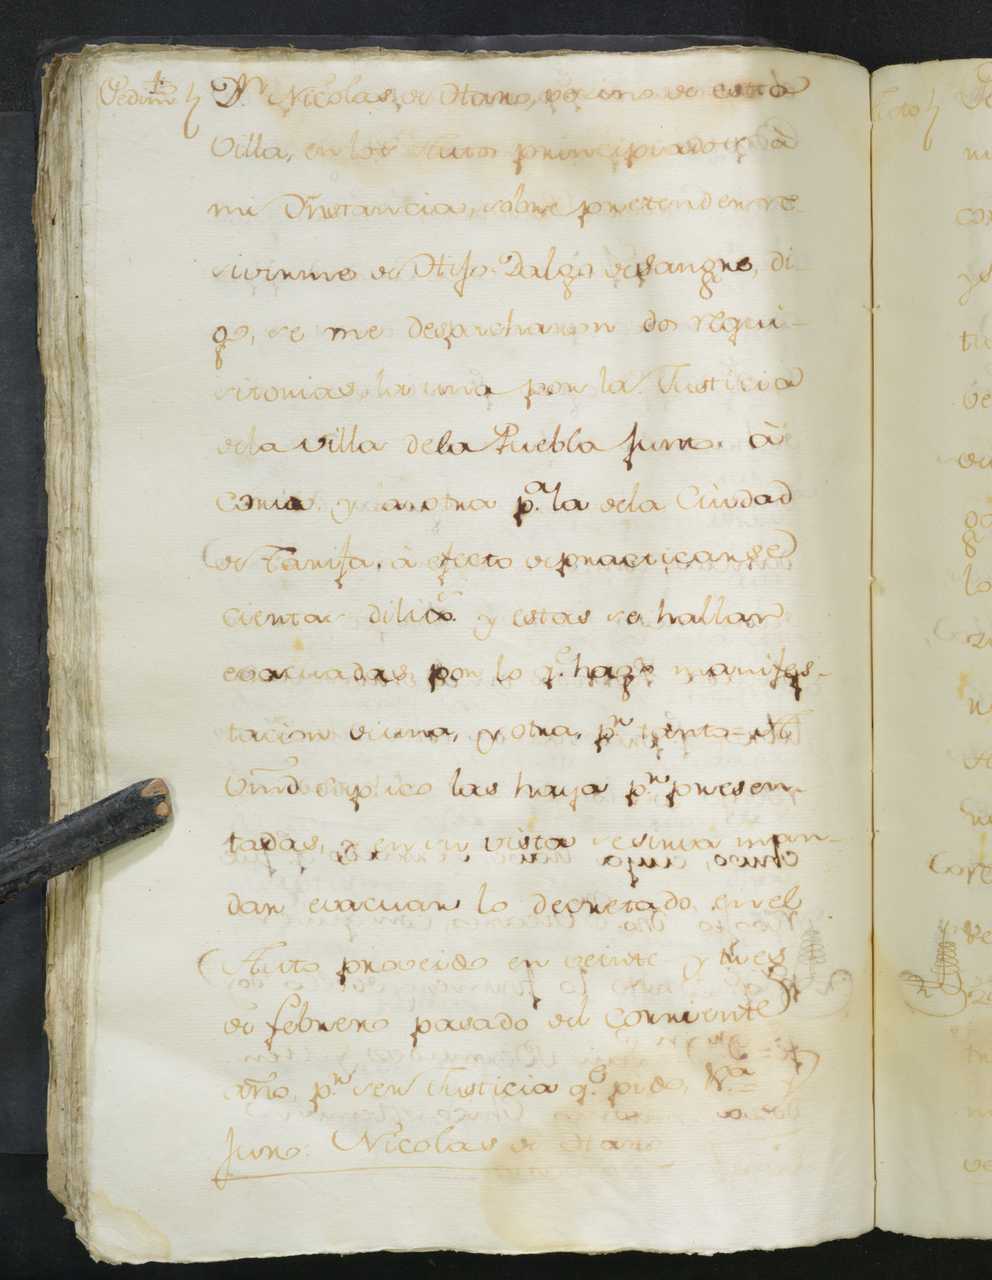 Pedimto
Dn. Nicolas de Otano, vecino de esta
Villa, en los Autos principiados à
mi Instancia, sobre pretender re-
civirme de Hijo-Dalgo de sangre, di-
go, se me despacharon dos requi-
sitorias, la una por la Justicia
de la Villa de la Puebla junto à
Coria y la otra pa. la de la Ciudad
de Tarifa, à efecto de practicarse
ciertas dilixs. y estas se hallan
evacuadas, por lo qe. hago manifes-
tacion de una, y otra, pr. tanto =
Vmd suplico las haya pr. presen-
tadas, y en su vista se sirva man-
dar evacuar lo decretado en el
Auto proveido en veinte y tres
de febrero pasado del corriente
año, pr. ser Justicia qe. pido, y
Juro. Nicolas de Otano